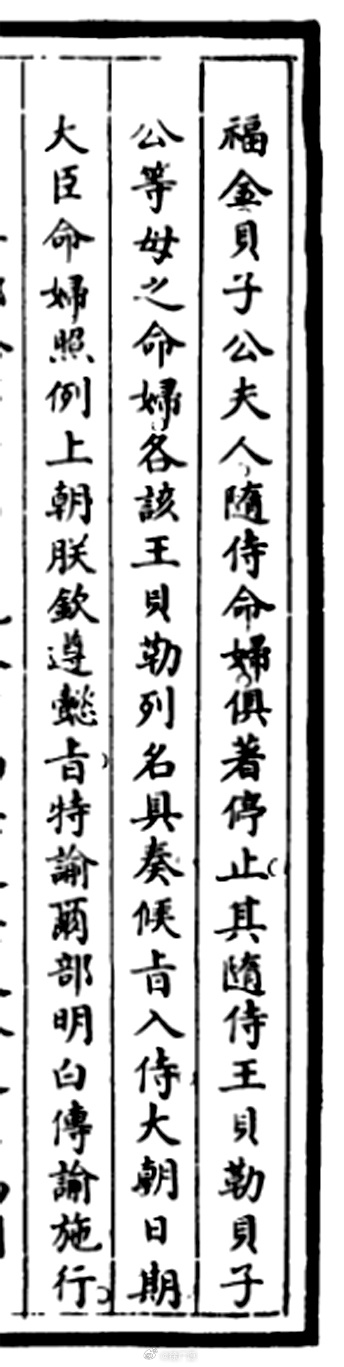 福金貝子公夫人隨侍命婦俱著停止其隨侍王貝勒貝子
公等母之命婦各該王貝勒列名具奏候旨入侍大朝日期
大臣命婦照例上朝朕欽遵懿旨特諭爾部明白傳諭施行